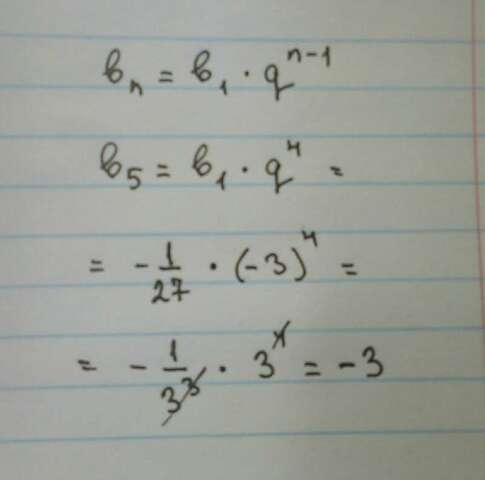 bₙ = b₁ · qⁿ⁻¹
b₅ = b₁ · q⁴ =
= - 1/27 · (-3)⁴ =
= - 1/3³ · 3⁴ = -3